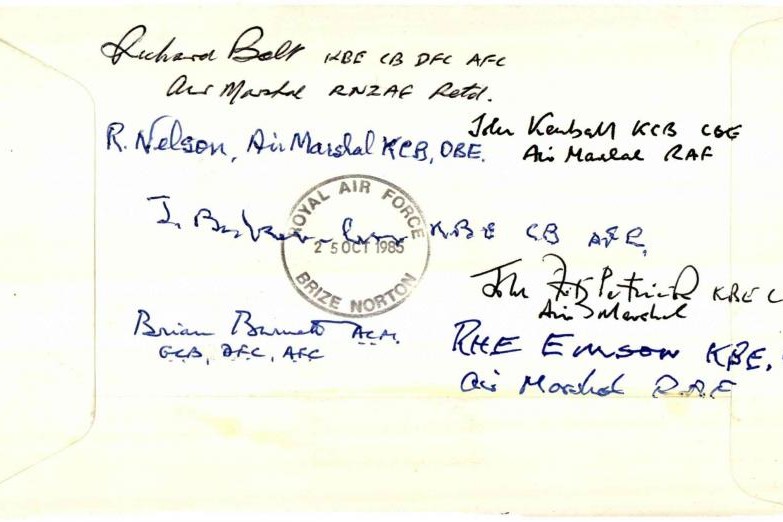 Richard Bolt KBE CB DFC AFC
Air Marshal RNZAF Retd.
John Kemball KCB CBE
Air Marshal RAF
R. Nelson, Air Marshal KCB, OBE.
ROYAL AIR FORCE
25 OCT 1985
BRIZE NORTON
KBE CB AFC
John FitzPatrick KBE C
Air Marshal
Brian Burnett ACM.
GCB, DFC, AFC
RHE EMSON KBE,
Air Marshal RAF